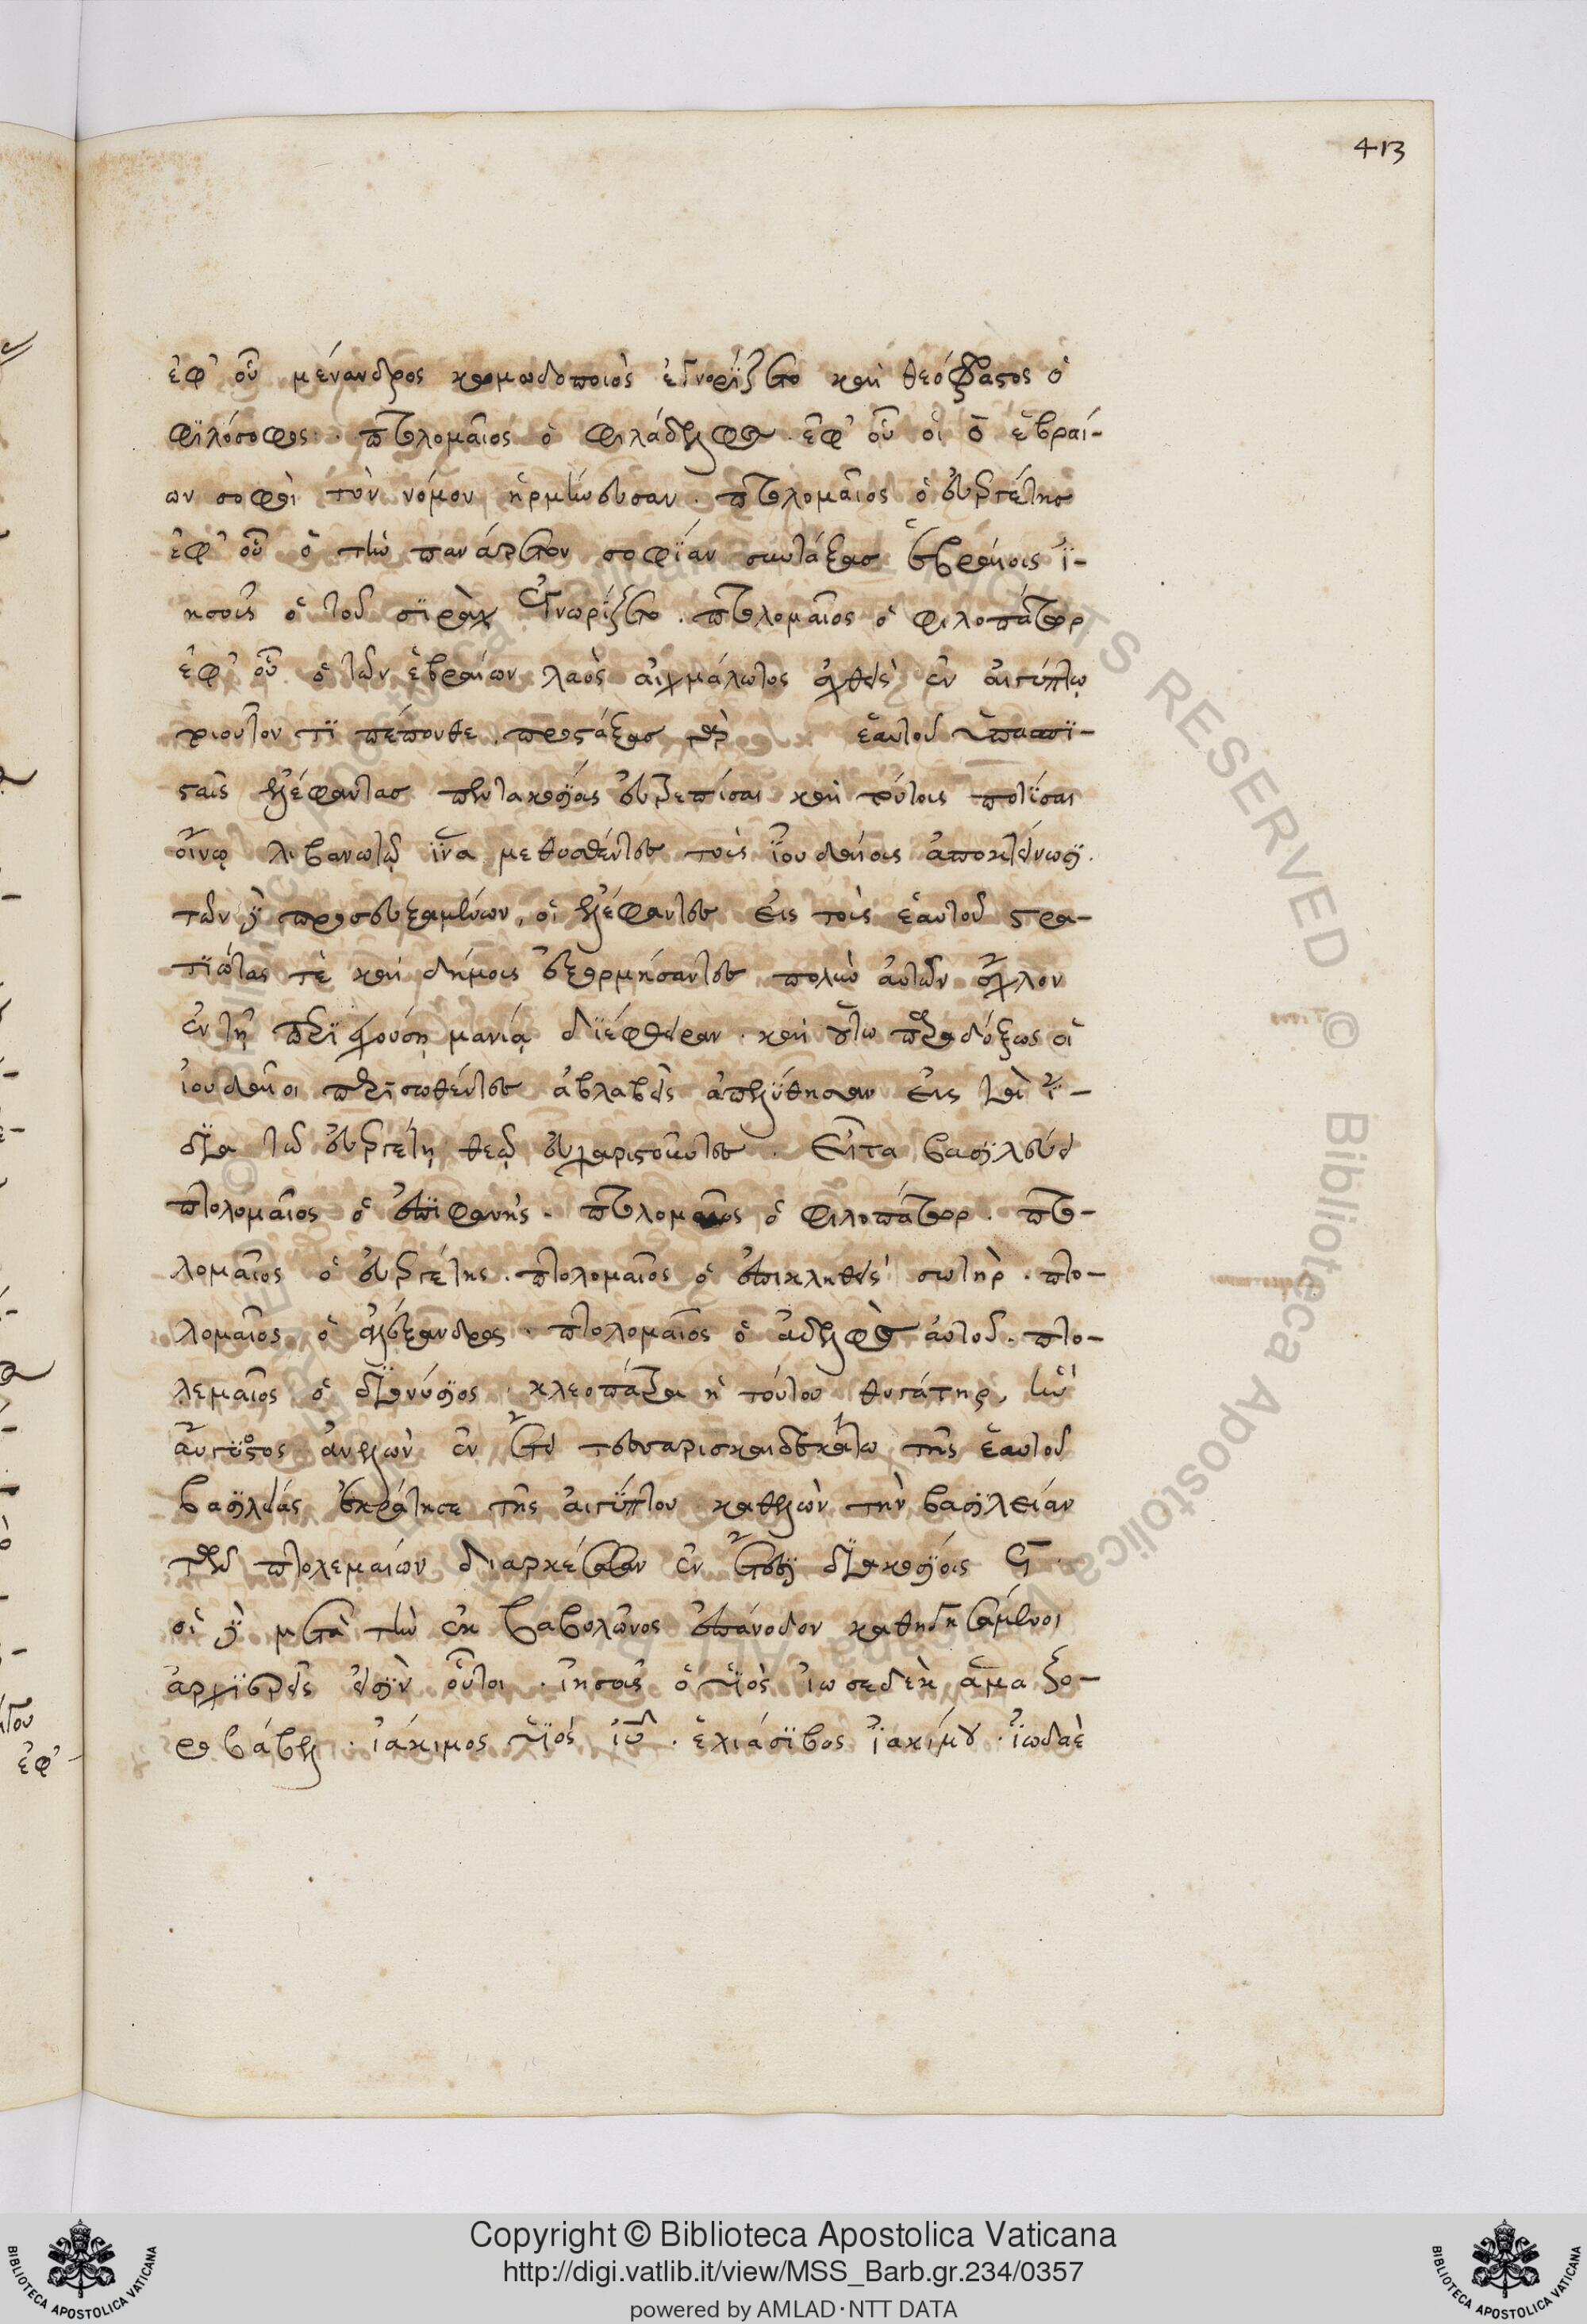 413
ἐφ' οὗ μένανδρος κωμωδοποιὸς ἐγνορίζετο καὶ θεόφραστος ὁ
φιλόσοφος. πτολομαῖος ὁ φιλάδελφος. ἐφ' οὗ οἱ ο ἑβραί-
ων σοφοὶ τὸν νόμον ἡρμήνευσαν. πτολομαῖος ὁ εὐεργέτης
ἐφ' οὗ ὁ τὴν πανάρετον σοφίαν συντάξας ἑβραίοις ἰ-
ησοῦς ὁ τοῦ σιρὰχ ἐγνωρίζετο. πτολομαῖος ὁ φιλοπάτωρ
ἐφ' οὗ ὁ τῶν ἑβραίων λαὸς αἰχμάλωτος ἀχθεὶς ἐν αἰγύπτω
τοιοῦτον τί πέπονθε. προστάξας ἑαυτοῦ ὑπασπι-
σταῖς ἐλέφαντας πεντακοσίας εὐτρεπίσαι καὶ τούτοις ποτίσαι
οἴνω λιβανωτῶ ἵνα μεθυσθέντες τοὺς ἰουδαίους ἀποκτείνωσι.
τῶν δὲ προσευξαμένων, οἱ ἐλέφαντες εἰς τοὺς ἑαυτοῦ στρα-
τιώτας τὲ καὶ δήμους ἐξορμήσαντες πολὺν αὐτῶν ὄχλον
ἐν τῇ περισχούσῃ μανίᾳ διέφθειραν. καὶ οὕτω παραδόξως οἱ
ἰουδαῖοι περισωθέντες ἀβλαβεῖς ἀπελύθησαν εἰς τὰ ἴ-
δια τῶ εὐεργέτῃ θεῶ εὐχαριστοῦντες. Εἶτα βασιλεύει
πτολομαῖος ὁ ἐπιφανής. πτολομαῖος ὁ φιλοπάτωρ. πτο-
λομαῖος ὁ εὐεργέτης. πτολομαῖος ὁ ἐπικληθεὶς σωτὴρ. πτο-
λομαῖος ὁ ἀλέξανδρος. πτολομαῖος ὁ ἀδελφὸς αὐτοῦ. πτο-
λεμαῖος ὁ διονύσιος. κλεοπάτρα ἡ τούτου θυγάτηρ, ἣν
αὔγουστος ἀνελὼν ἐν ἔτει τεσσαρισκαιδεκάτω τῆς ἑαυτοῦ
βασιλείας ἐκράτησε τῆς αἰγύπτου καθελὼν τὴν βασιλείαν
τῶν πτολεμαίων διαρκέσασαν ἐν ἔτεσι διακοσίοις
οἱ δὲ μετὰ τὴν ἐκ βαβυλῶνος ἐπάνοδον καθηγησάμενοι
ἀρχιερεῖς εἰσὶν οὗτοι. ἰησοῦς ὁ υἱὸς ἰωσεδὲκ ἅμα ζο-
ροβάβελ. ἰάκιμος υἱὸς ἰυ. ἐλιάσιβος ἰακίμου. ἰωδαὲ
Copyright © Biblioteca Apostolica Vaticana
http://digi.vatlib.it/view/MSS_Barb.gr.234/0357
powered by AMLAD·NTT DATA